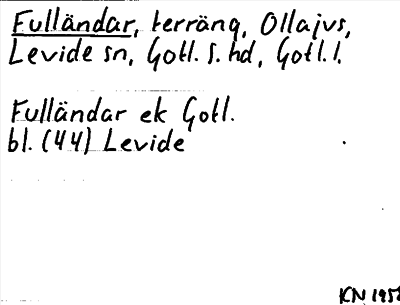 Fulländar, terräng, Ollajvs,
Levide sn, Gotl. S. hd, Gotl. l.
Fulländar ek Gotl.
bl. (44) Levide
KN 195